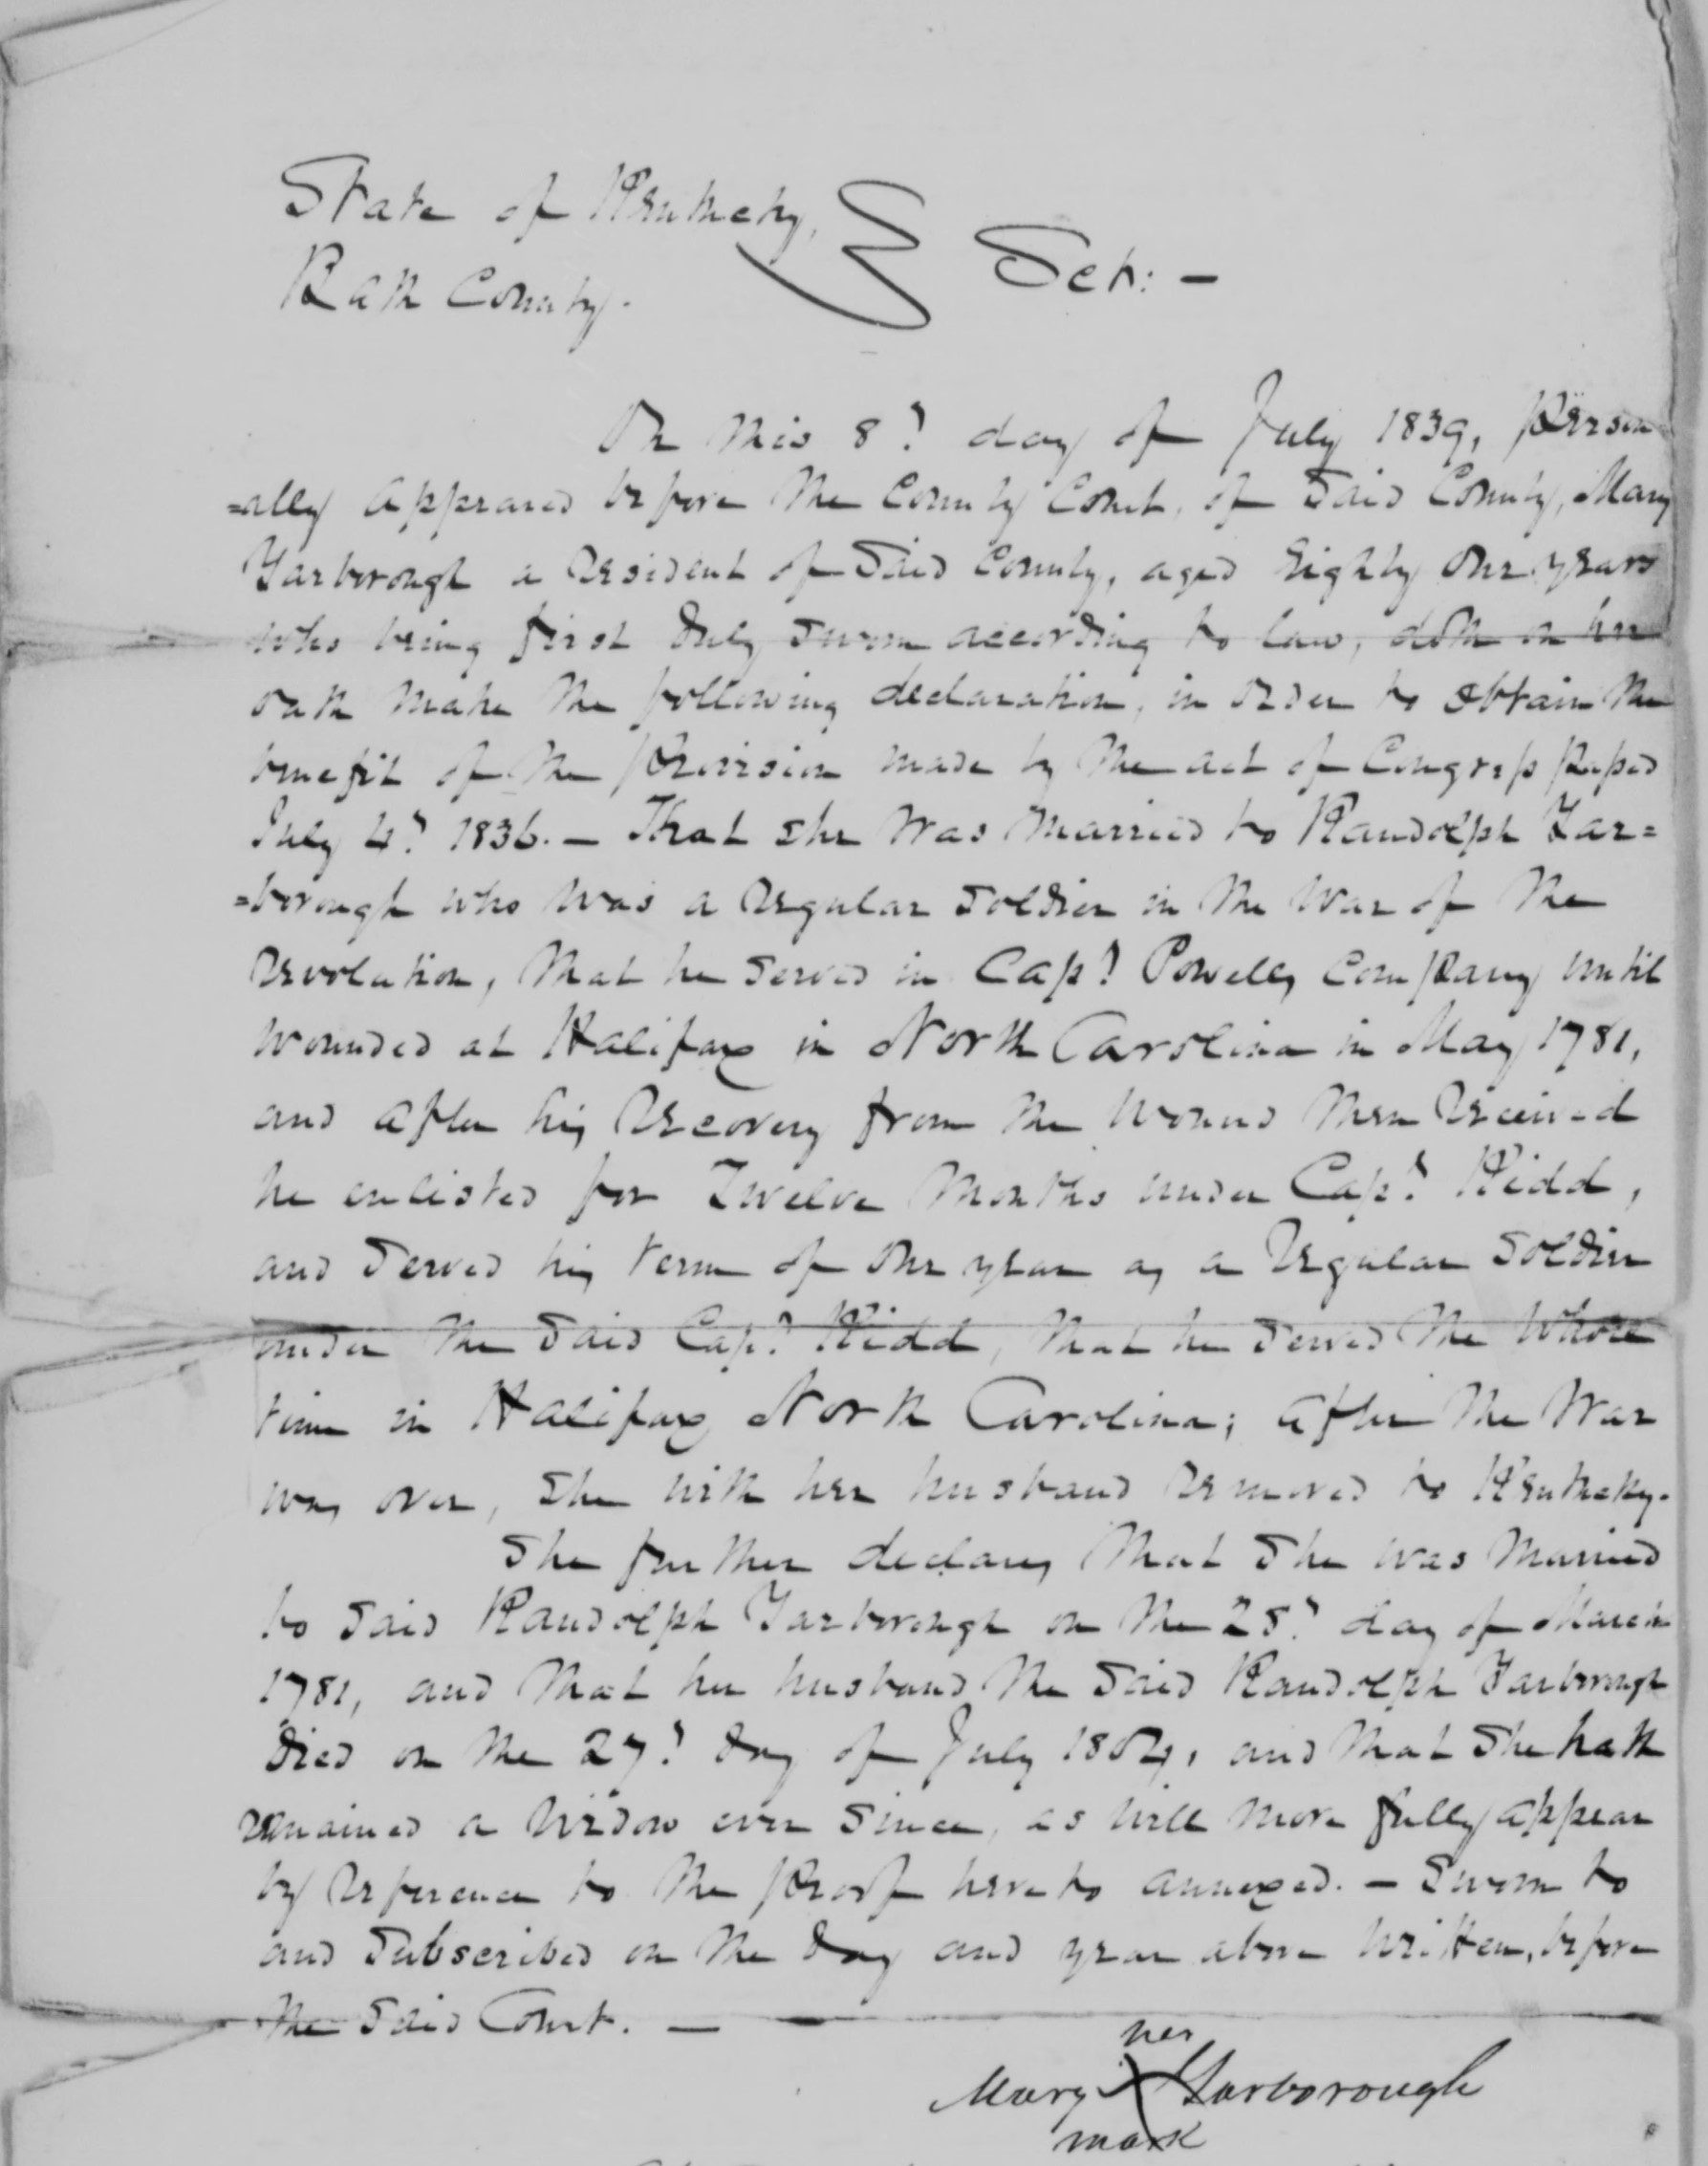 State of Kentucky,
Bath County. } Sct: -
On this 8th day of July 1839, person
=ally appeared before the County Court, of Said County, Mary
Yarborough a resident of Said County, aged Eighty One years
who being first duly sworn according to law, doth on her
oath make the following declaration, in order to obtain the
benefit of the provision made by the act of Congress passed
July 4th 1836. - That she was married to Randolph Yar=
=borough who was a regular Soldier in the War of the
revolution, that he served in Capt Powells Company until
wounded at Halifax in North Carolina in May 1781,
and after his recovery from the wound then received
he enlisted for Twelve Months under Capt Kidd,
and Served his term of One year as a regular Soldier
under the Said Capt Kidd, that he Served the Whole
time in Halifax North Carolina; after the War
was over, She with her husband removed to Kentucky.
She further declares that She was Married
to Said Randolph Yarborough on the 25th day of March
1781, and that her husband the Said Randolph Yarborough
died on the 27th day of July 1804, and that She hath
remained a Widow ever Since, as will more fully appear
by reference to the proof hereto annexed. - Sworn to
and Subscribed on the day and year above written, before
the Said Court. -
her
Mary X Yarborough
mark